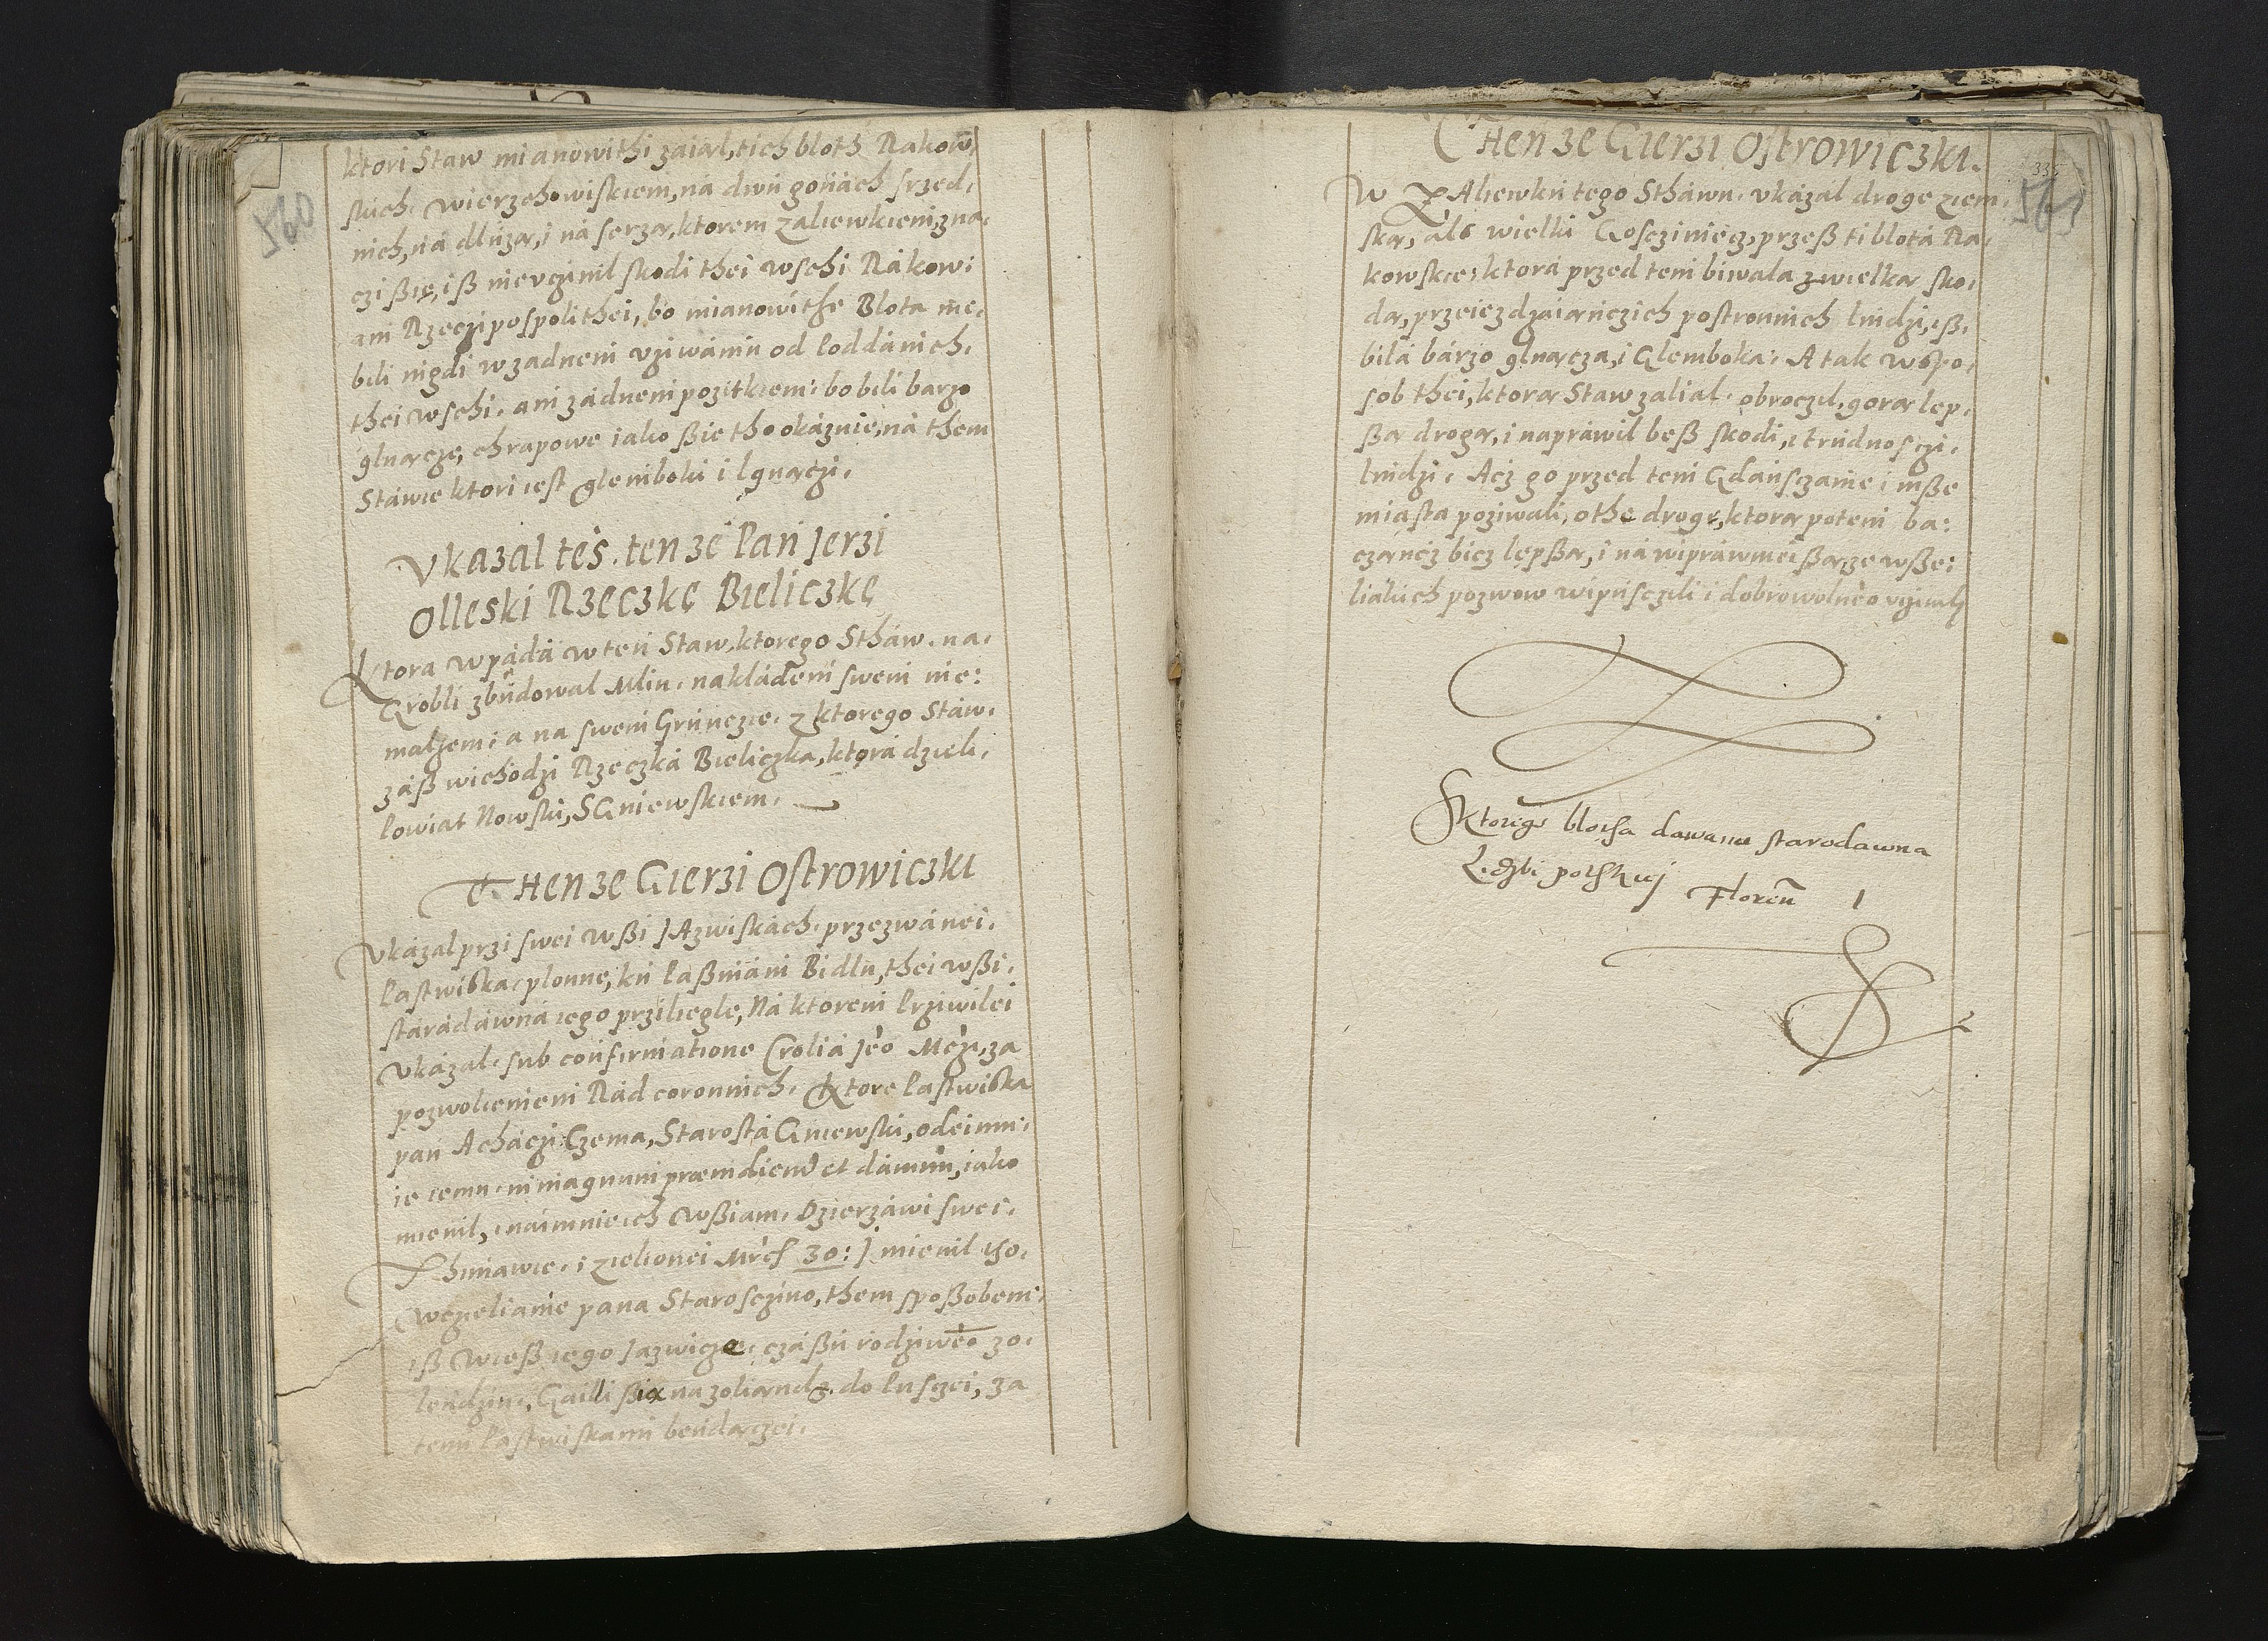 560
ktori Staw mianowithi zaiął, tich bloth Rakow̄,
skich, wierzchowiskiem, na dwu goniach srzed,
nich, na dłuzą, i na serzą, ktorem zaliewkiem, zna,
czi ßię, iß nieuczinil skodi thei wschi Rakowi
ani Rzeczipospolithei, bo mianowithe Blota nie,
bili nigdi w zadnem uziwaniu od Poddanich,
thei wschi, ani zadnem pozitkiem: bo bili barzo
glnącze, chrapowe iako ßie tho okaznie, na them
Stawie ktori iest glemboki i lgnączi,
Vkazal tes. ten ze Pan Jerzi
Olleski Rzeczkę Bieliczkę
Ktora wpada w ten Staw, ktorego Sthaw, na,
Grobli zbudowal Mlin, nakladem swem nie:
malzem: a na swem Gruncżie, z ktorego Staw,
zaß wichodzi Rzeczka Bieliczka, ktora dzieli,
Powiat Nowski, S Gniewskiem,
Then ze Gierzi Ostrowiczki
Vkazal przi swei wßi JAzwiskach, przezwanei,
Pastwiska, plonne, ku Paßniani Bidlu, thei wßi,
staradawna iego przilegle, Na ktorem Prziwilei
Vkazal, sub confirmatione Crolia Jeo Mczi, za
pozwolieniem Rad coronnich, Ktore Pastwiska
pan Achaczi Czema, Starosta Gniewski, odeimu,
ie iemu, in magnum praeiudiciu et damnu, iako
mienil, naimnie ich wßiam, Dzierzawi swei,
Thimawie, i Zielionei Mrcs 30: J mienil tho,
wczeliame pana Starosczino, them sposßobem:
iß wieß iego Jazwicze, czaßu rodziweo zo,
lendziu, Gailli ßie na zoliandz, do Pusczei, za
temi Pastwiskami bendączei,
335
563
Then ze Gierzi Ostrowiczki.
W ZAliewku tego Sthawu, vkazal droge ziem,
ską, als wielki Gosczinięcz, przeß ti blota Ra,
kowskie: ktora przed tem biwala z wielką sko,
dą, przeiezdzaiąnczich postronnich ludzi, iß,
bila barzo glnącza, i Glemboka: A tak w spo,
sob thei, ktorą Staw zalial, obroczil, gorą lep,
ßą drogą, i naprawil beß skodi, i trudnosczi,
ludzi, Acz go przed tem Gdansczanie i inße
miasta poziwali, o the droge, ktorą potem ba:
cząncz bicz lepßą, i na wiprawnieißą, ze wße:
liakich pozwow wipusczili i dobrowolneo
Sktorego blotha dawano starodawna
Liczbi polskiej Floren 1